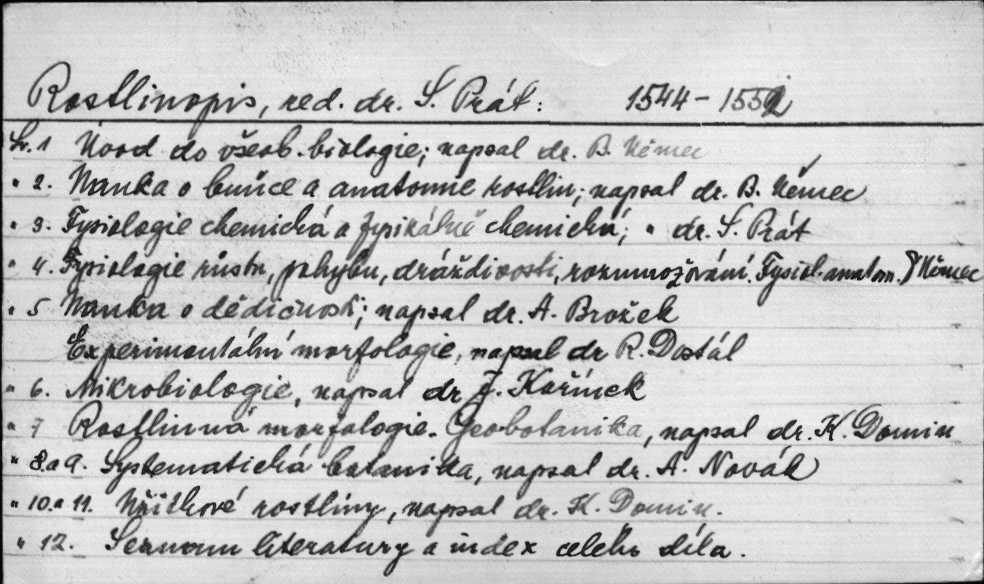 Rostlinopis, red. dr. S. Prát: 1544-1552
Sv. 1 Úvod do všeob. biologie; napsal dr. B. Němec
" 2. Nauka o buňce a anatomie rostlin; napsal dr. B. Němec
" 3. Fysiologie chemická a fysikálně chemická; " dr. S. Prát
" 4. Fysiologie růstu, pohybu, dráždivosti, rozmnožování. Fysiol. anatom. Němec
" 5 Nauka o dědičnosti; napsal dr. A. Brožek
Experimentální morfologie, napsal dr R. Dostál
" 6. Mikrobiologie, napsal dr J. Kořínek
" 7 Rostlinná morfologie. Geobotanika, napsal dr. K. Domin
" 8. a 9. Systematická botanika, napsal dr. A. Novák
" 10. a 11. Užitkové rostliny, napsal dr. K. Domin.
" 12. Seznam literatury a index celého díla.